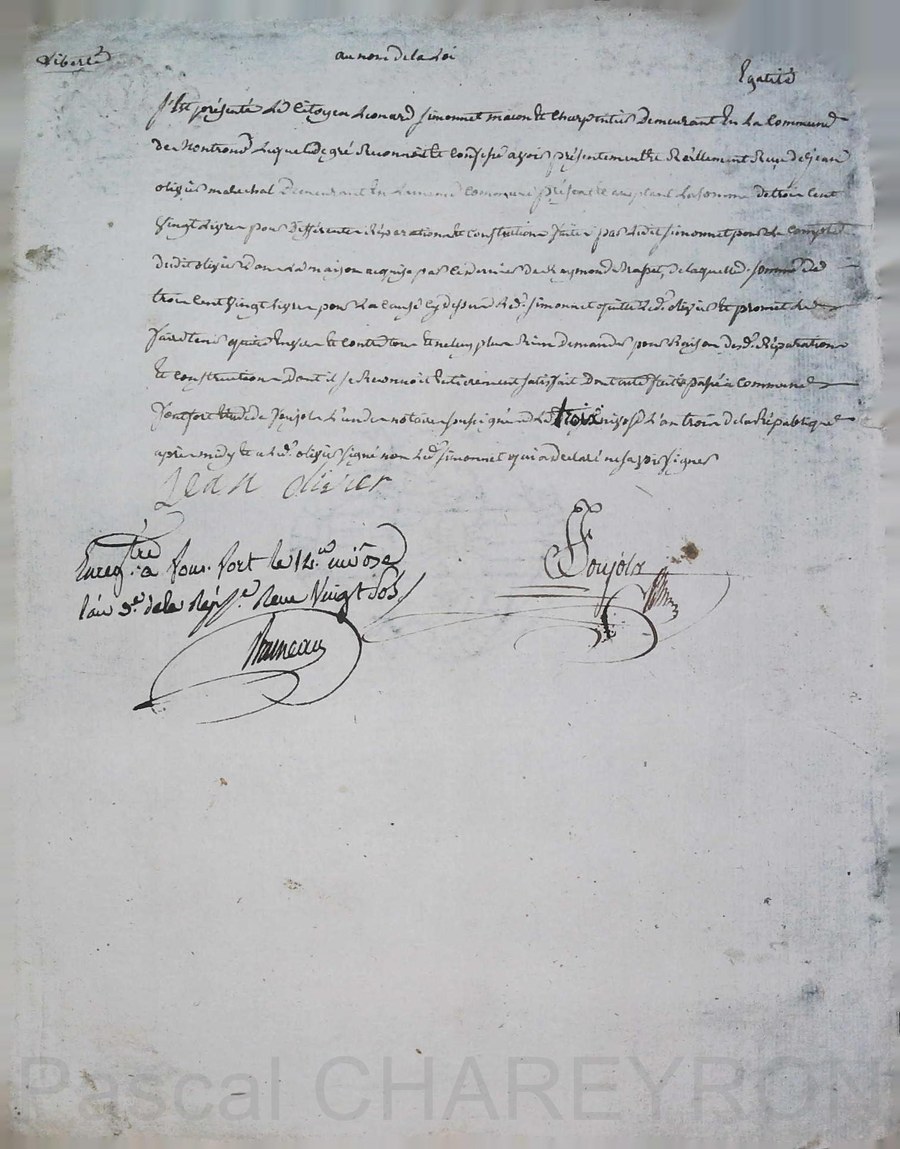 Liberté au nom de la Loi Egalité
s'Est présenté Le Citoyen Leonard simonnet macon Et Charpentier Demeurant En La Commune
de Lequel de gré Reconnoit Et confesse avoir présentement Et Réellement Reçu de jean
olivier marechal demeurant En La meme Commune présent Et acceptant La somme de trois cent
vingt Livres pour differentes Réparations Et constructions faites par Ledit simonnet pour Le Compte
dudit olivier dans La maison acquise par ce dernier de Raymond de laquelle d. somme de
trois Cent vingt Livres pour La cause Cy dessus Led. simonnet quitte Led. olivier Et promet Le
faire tenir quitte Envers Et Contre tous Et ne luy plus Rien demander pour Raison desd. Réparations
Et constructions Dont il se Reconnoit Entierement satisfait Dont acte fait Et passé a commune
Etude de Soujola L'un des notaires soussignés Le trois nivose L'an trois de la République
après midy Et a Led. olivier signé non Led. simonnet qui a declaré ne savoir signer
Jean olivier
Soujola
Enreg.tré a four. fort le 14. nivose
l'an 3.e de la Rép. Reçu Vingt sols
Pascal CHAREYRON